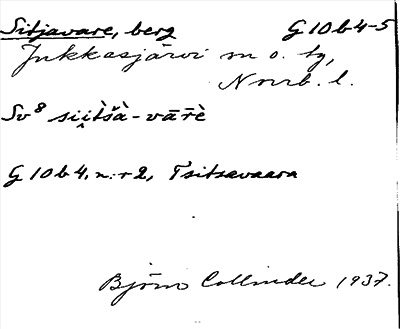 Sitjavare, berg G 10 b 4-5
Jukkasjärvi m o. tg,
Norrb. l.
Sv⁸ sii̯tšà-vār̄è
G 10 b 4, n:r 2, Tsitsavaara
Björn Collinder 1937.